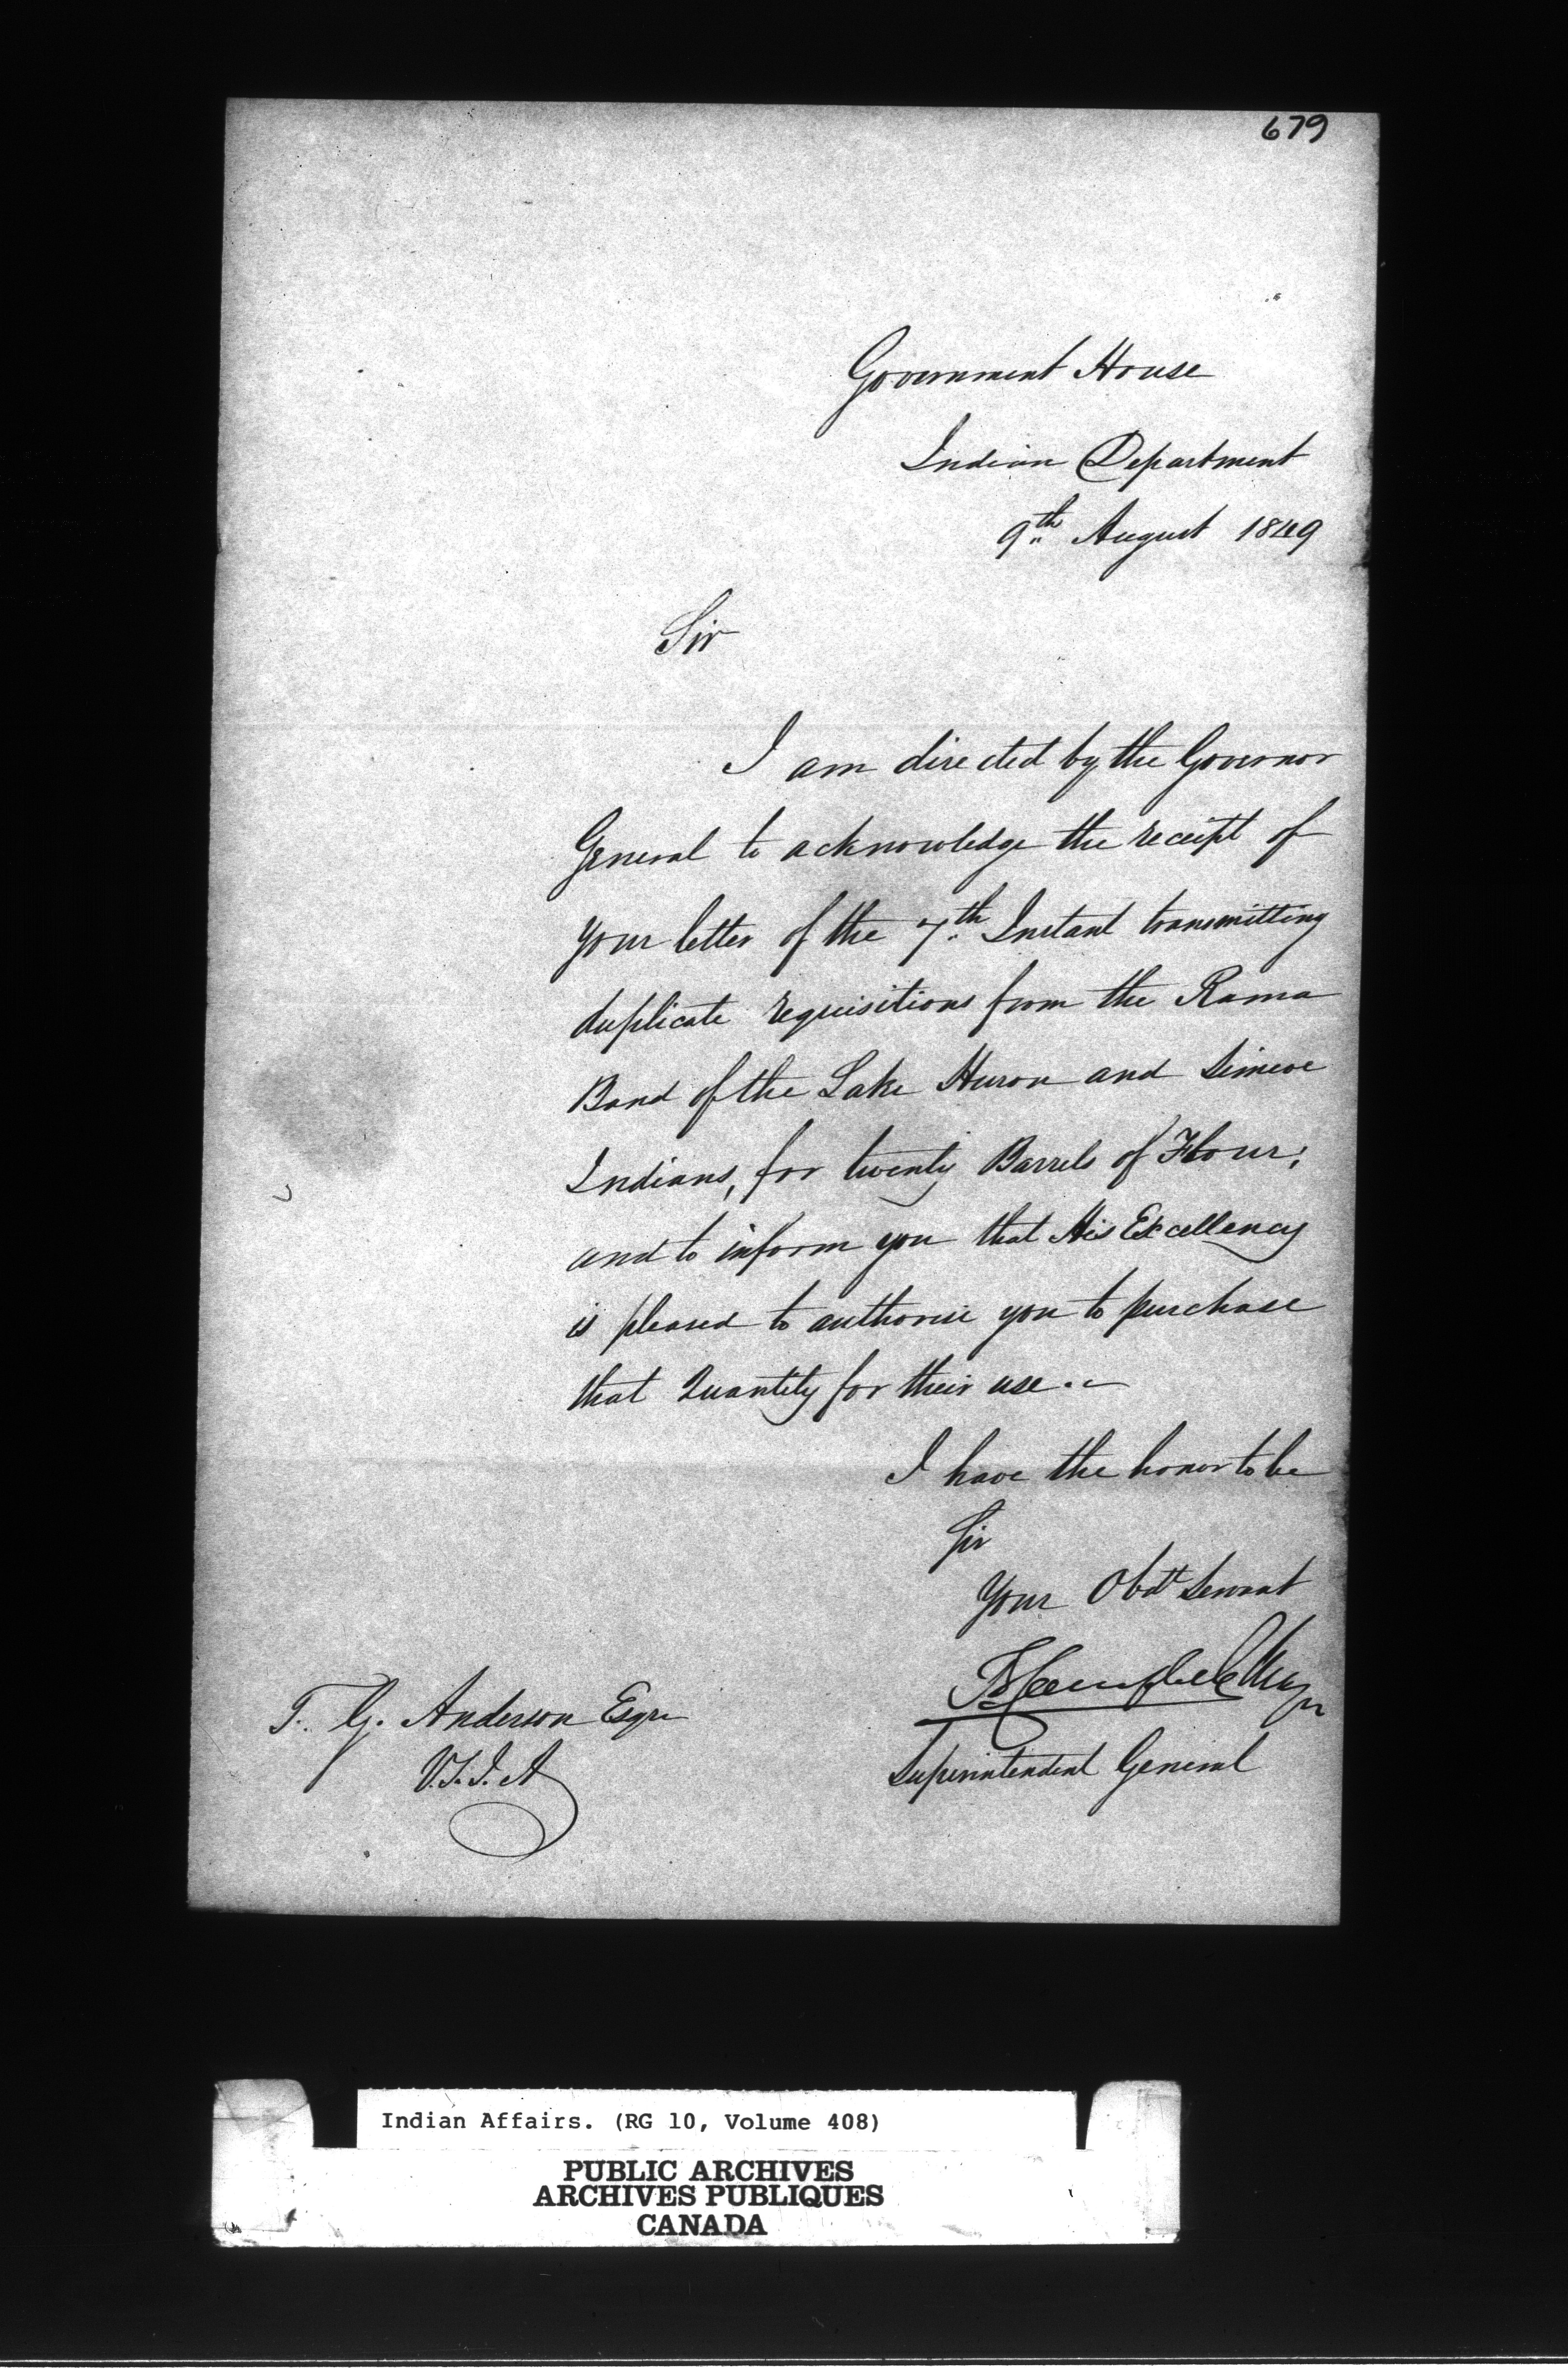 679
Government House
Indian Department
9th August 1849
Sir
I am directed by the Governor
General to acknowledge the receipt of
your letter of the 7th Instant transmitting
duplicate requisitions from the Rama
Band of the Lake Huron and Simcoe
Indians, for twenty Barrels of Flour;
and to inform you that His Excellency
is pleased to authorise you to purchase
that Quantity for their use.
I have the honor to be
Sir
Your Obdt Servant
T Campbell Major
Superintendent General
T. G. Anderson Esqre
V.S.I.A
Indian Affairs. (RG 10, Volume 408)
PUBLIC ARCHIVES
ARCHIVES PUBLIQUES
CANADA